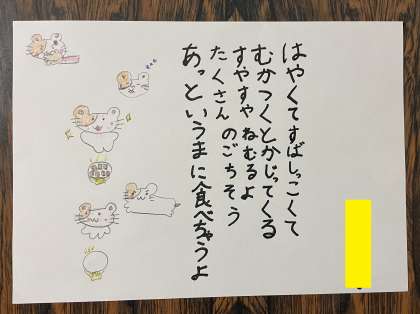 はやくてすばしっこくて
むかつくとかじってくる
すやすやねむるよ
たくさんのごちそう
あっというまに食べちゃうよ